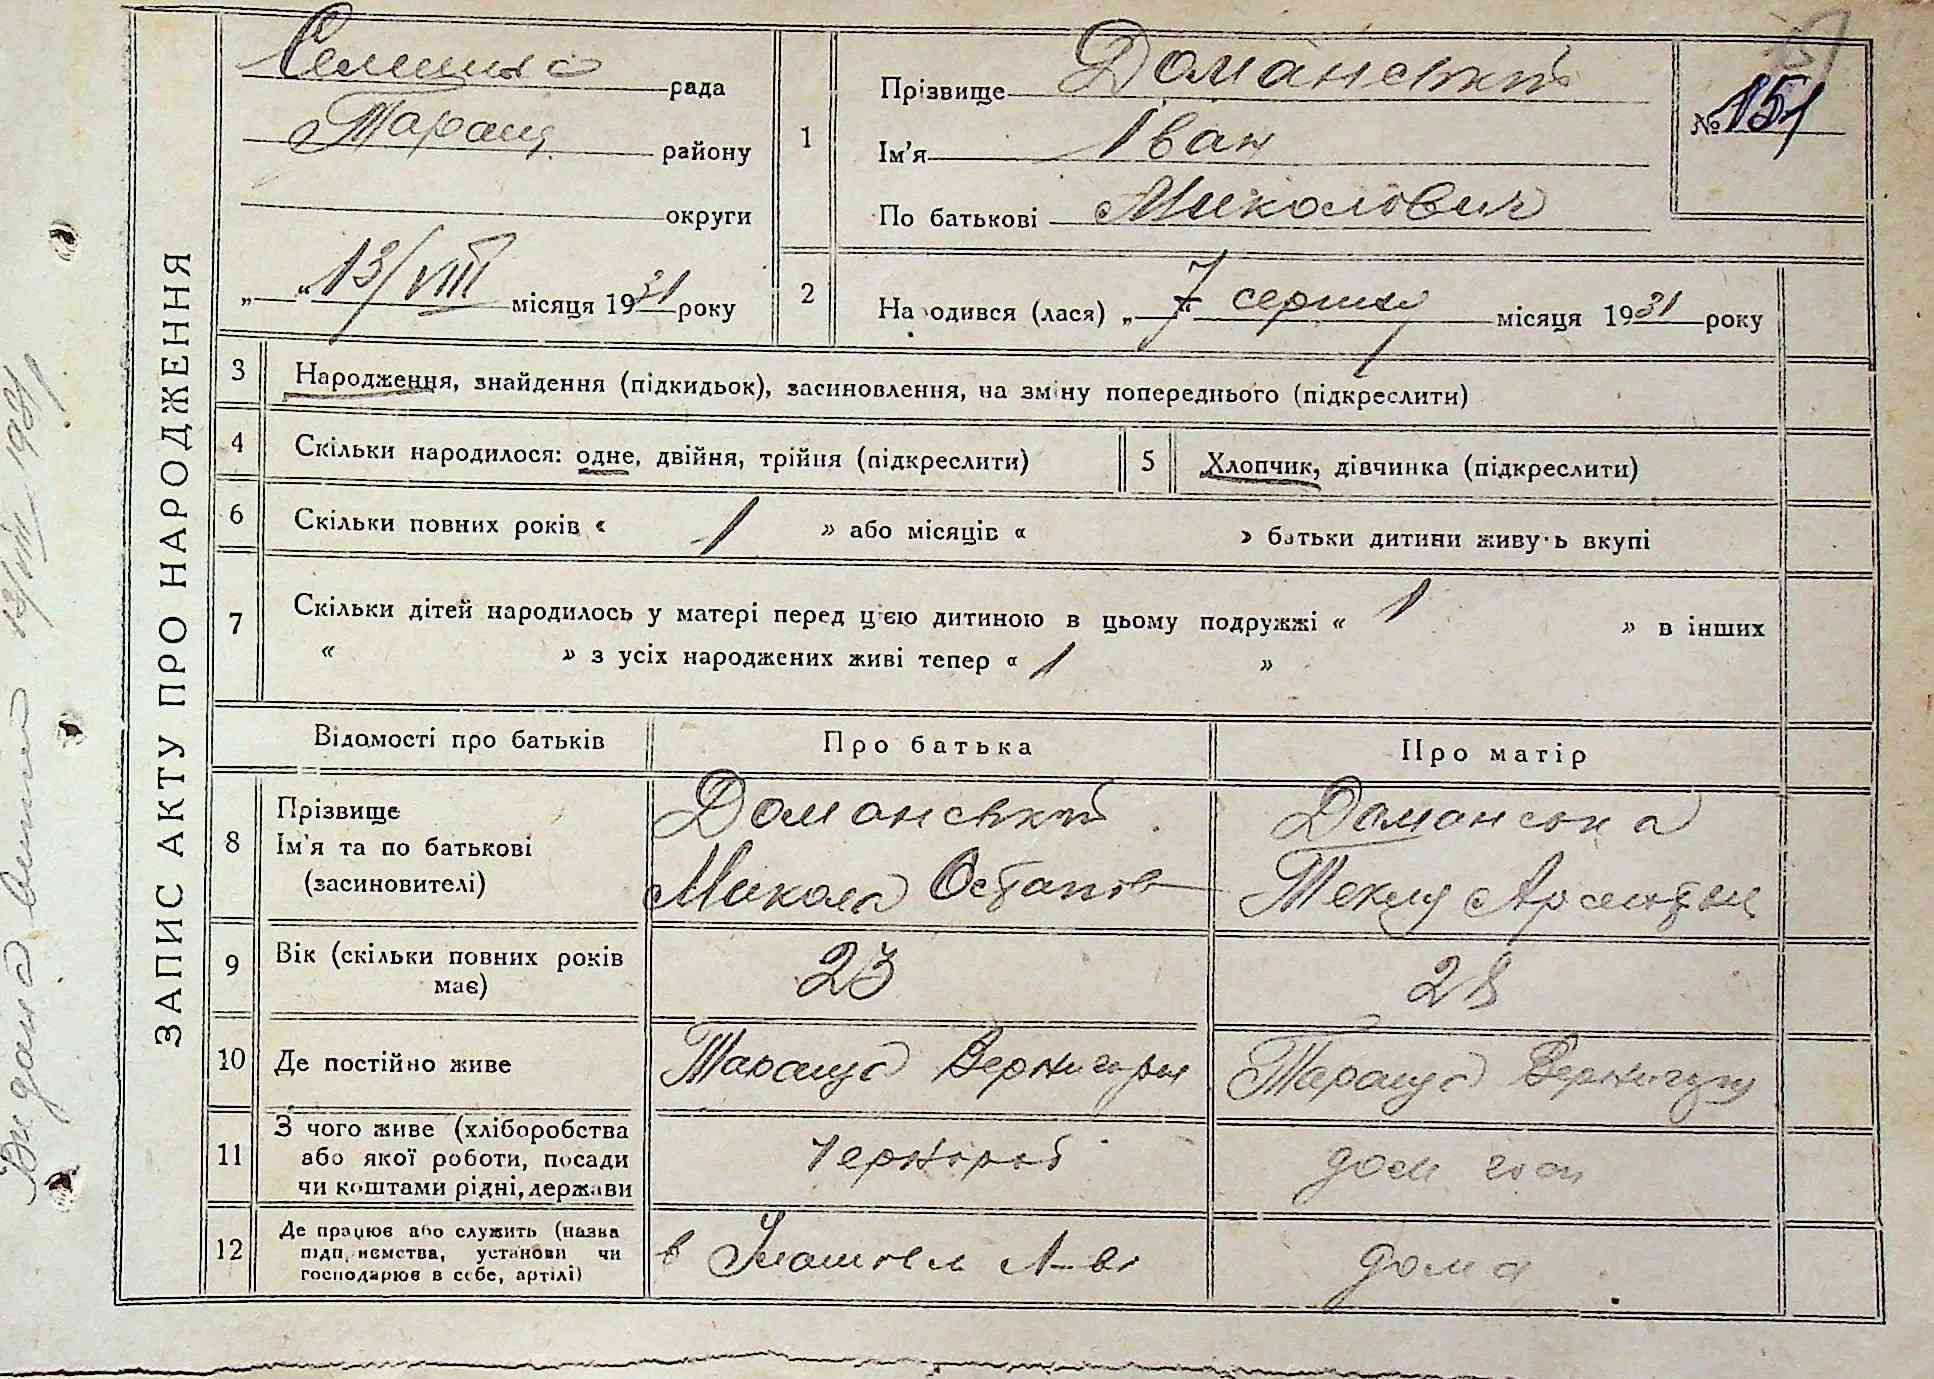 ЗАПИС АКТУ ПРО НАРОДЖЕННЯ
Селищна рада
Таращ. району
округи
„ “ 13/VIII місяця 1931 року
1
Прізвище Доманський
Ім'я Іван
По батькові Миколович
№ 151
2
Народився (лася) „ 7 “ серпня місяця 1931 року
3 Народження, знайдення (підкидьок), засиновлення, на зміну попереднього (підкреслити)
4 Скільки народилося: одне, двійня, трійня (підкреслити)
5 Хлопчик, дівчинка (підкреслити)
6 Скільки повних років « 1 » або місяців « » батьки дитини живуть вкупі
7 Скільки дітей народилось у матері перед цією дитиною в цьому подружжі « 1 » в інших
« » з усіх народжених живі тепер « 1 »
Відомості про батьків Про батька Про матір
8 Прізвище
Ім'я та по батькові
(засиновителі)
Доманський
Микола Остапов
Доманська
Текля
9 Вік (скільки повних років
має)
23
28
10 Де постійно живе
Тараща Вернигори
Тараща Вернигори
11 З чого живе (хліборобства
або якої роботи, посади
чи коштами рідні, держави
Чернороб
дом гос
12 Де працює або служить (назва
підприємства, установи чи
господарює в себе, артілі)
в
дома
Видана 13/VIII 1931